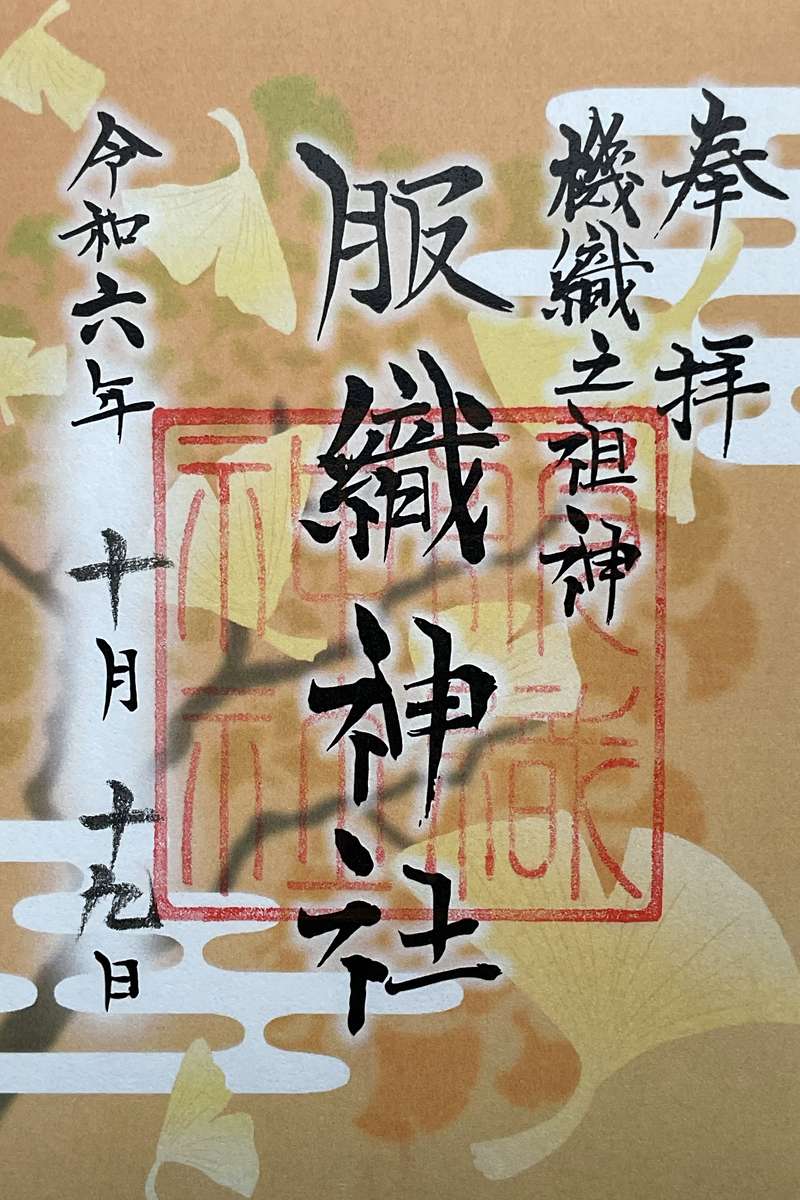 奉拝
機織之祖神
服織神社
令和六年 十月 十九日
服織神社